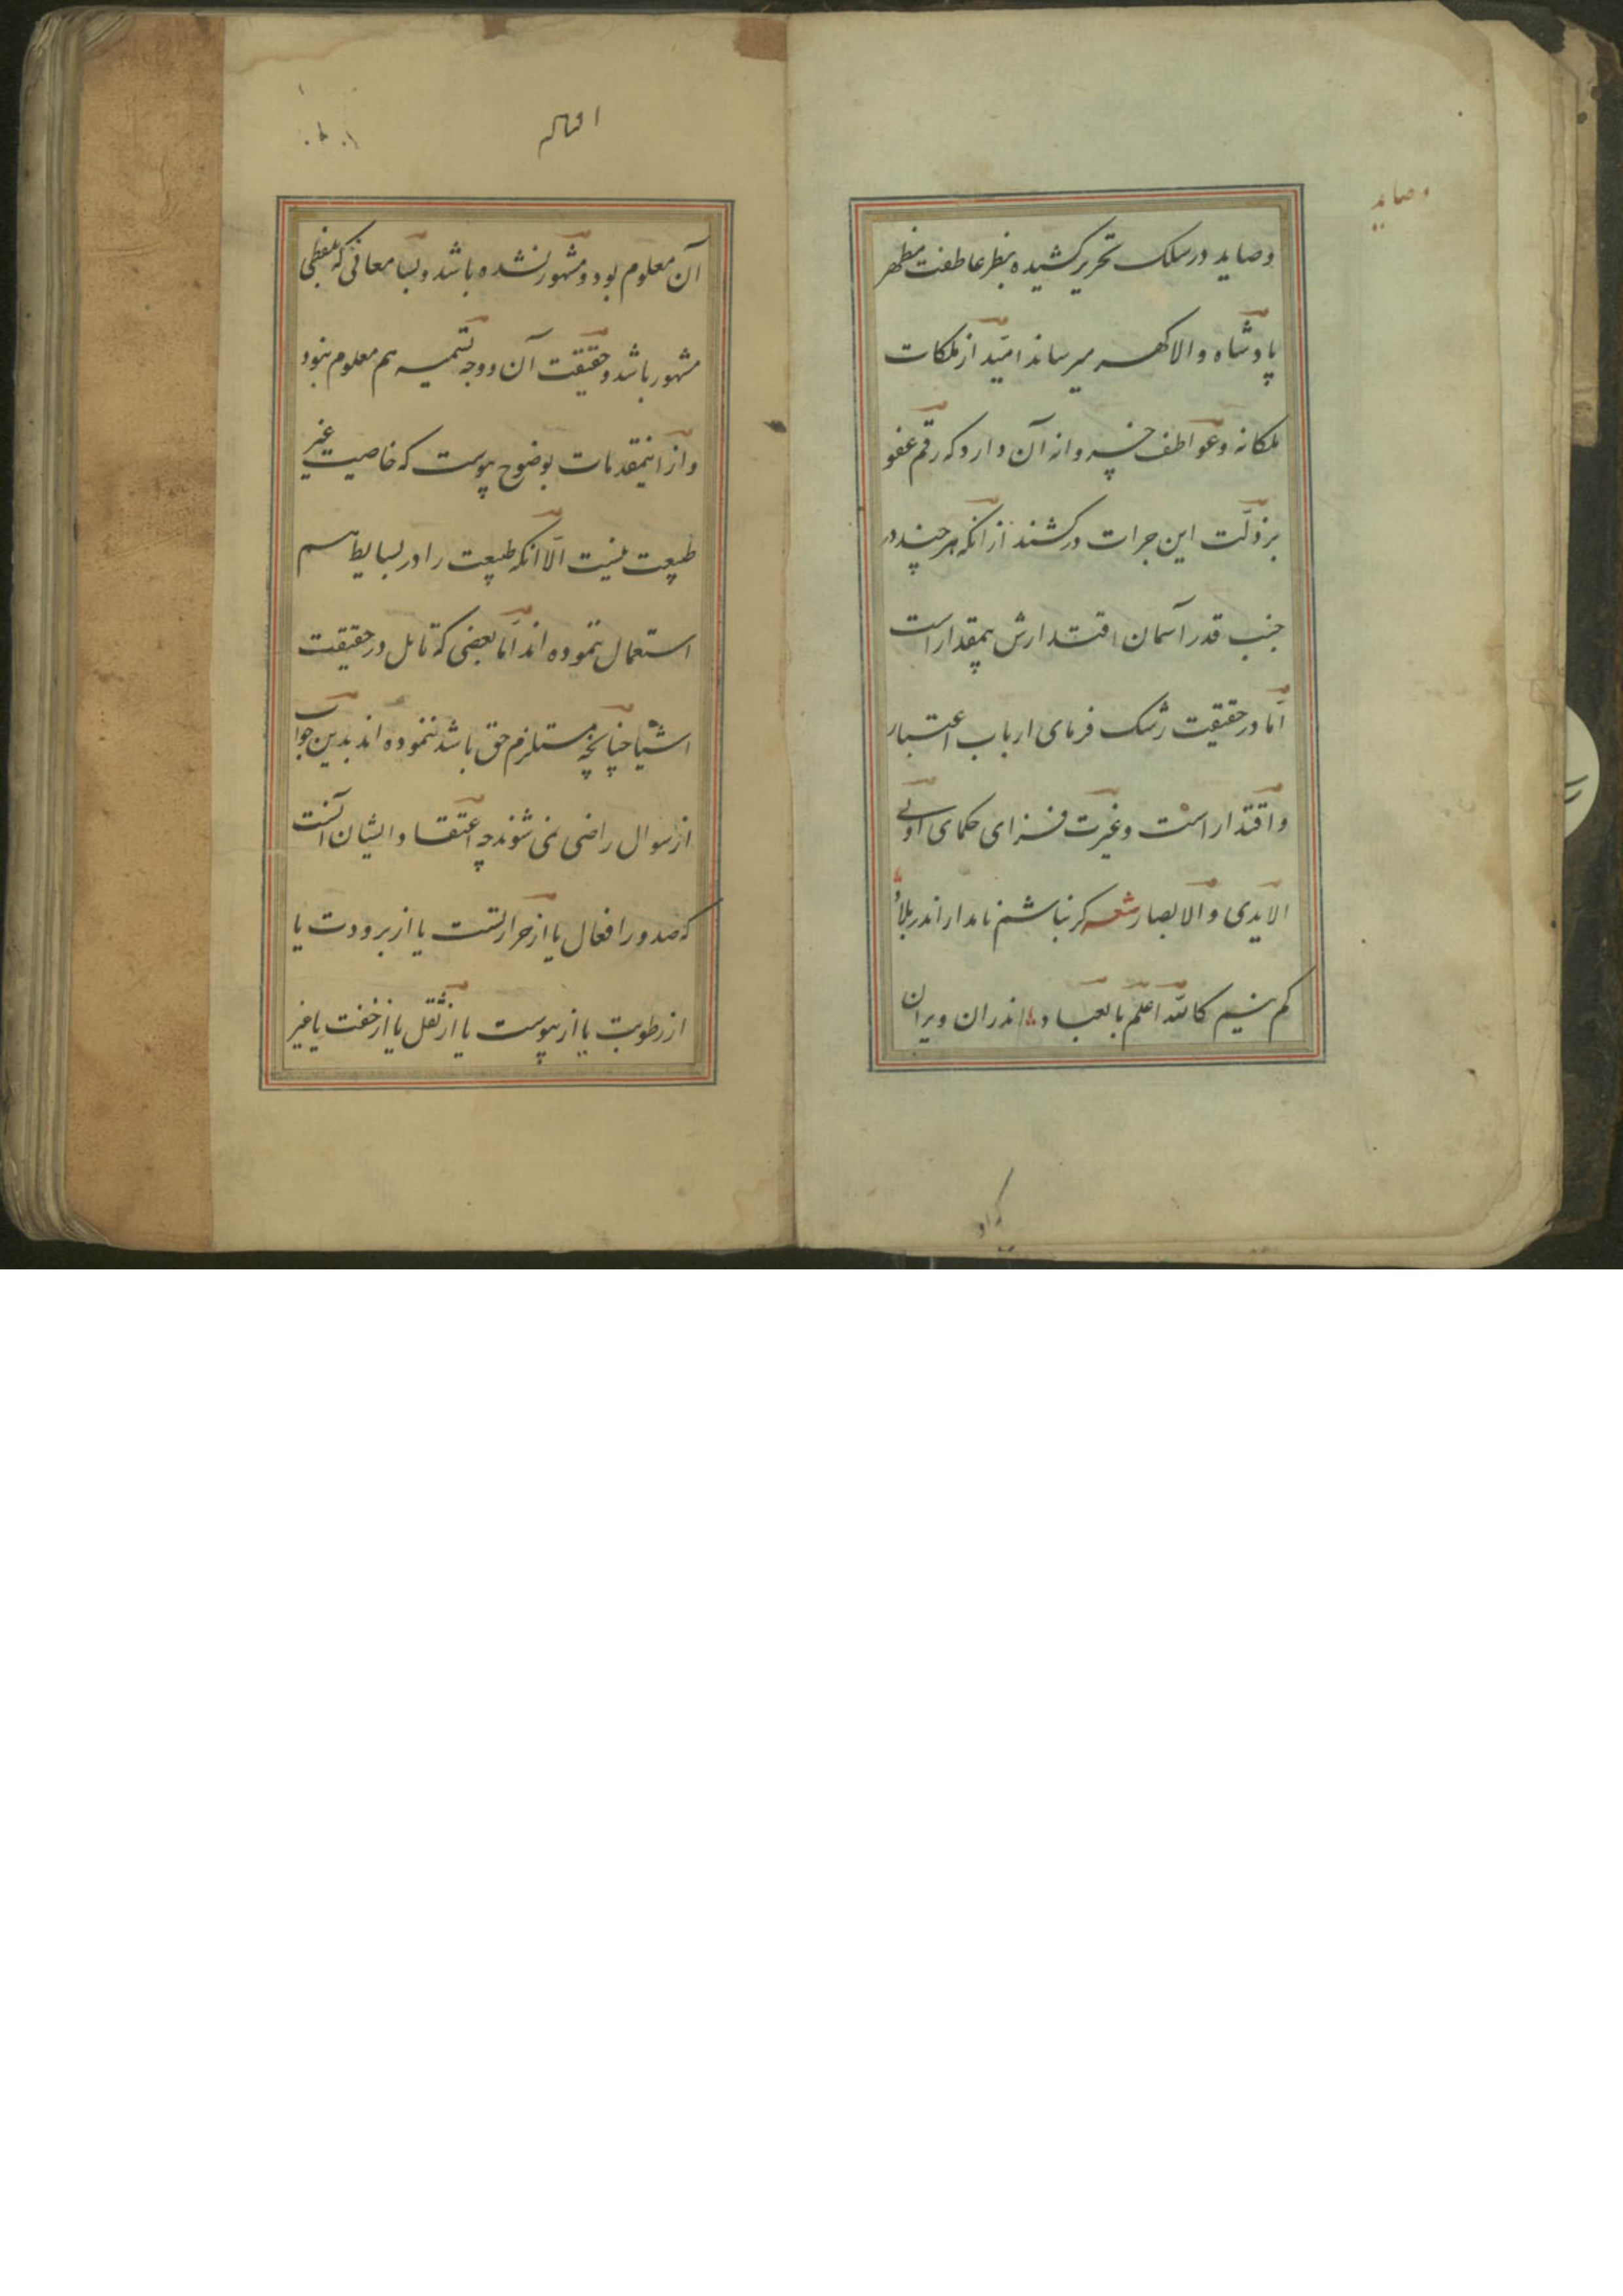 وصاید
وصاید در سلک تحریر کشیده بنظر عاطفت مظهر
پادشاه والا کهر میرساند امید از ملکات
ملکانه و عواطف خسروانه آن دارد که رقم عفو
بر ذلّت این جرات درکشند از آنکه هر چند در
جنب قدر آسمان اقتدارش بیمقدار است
امّا در حقیقت رشک فرمای ارباب اعتبار
و اقتدار است و غیرت فزای حکمای اولی
الایدی و الابصار شعر کر نباشم نامدار اندر بلاد
کم نیم کالله اعلم بالعباد اندران ویران
آن معلوم بود و مشهور نشده باشد و بسا معانی که بلفظی
مشهور باشد و حقیقت آن و وجه تسمیه هم معلوم نبود
و از اینمقدمات بوضوح پیوست که خاصیت غیر
طبیعت نیست الّا انکه طبیعت را در بسایط هم
استعمال نموده اند امّا بعضی که تامل در حقیقت
اشیا چنانچه مستلزم حق باشد ننموده اند بدین جواب
از سوال راضی نمی شوند چه اعتقاد ایشان آنست
که صدور افعال یا از حرارتست یا از برودت یا
از رطوبت یا از یبوست یا از ثقل یا از خفت یا غیر